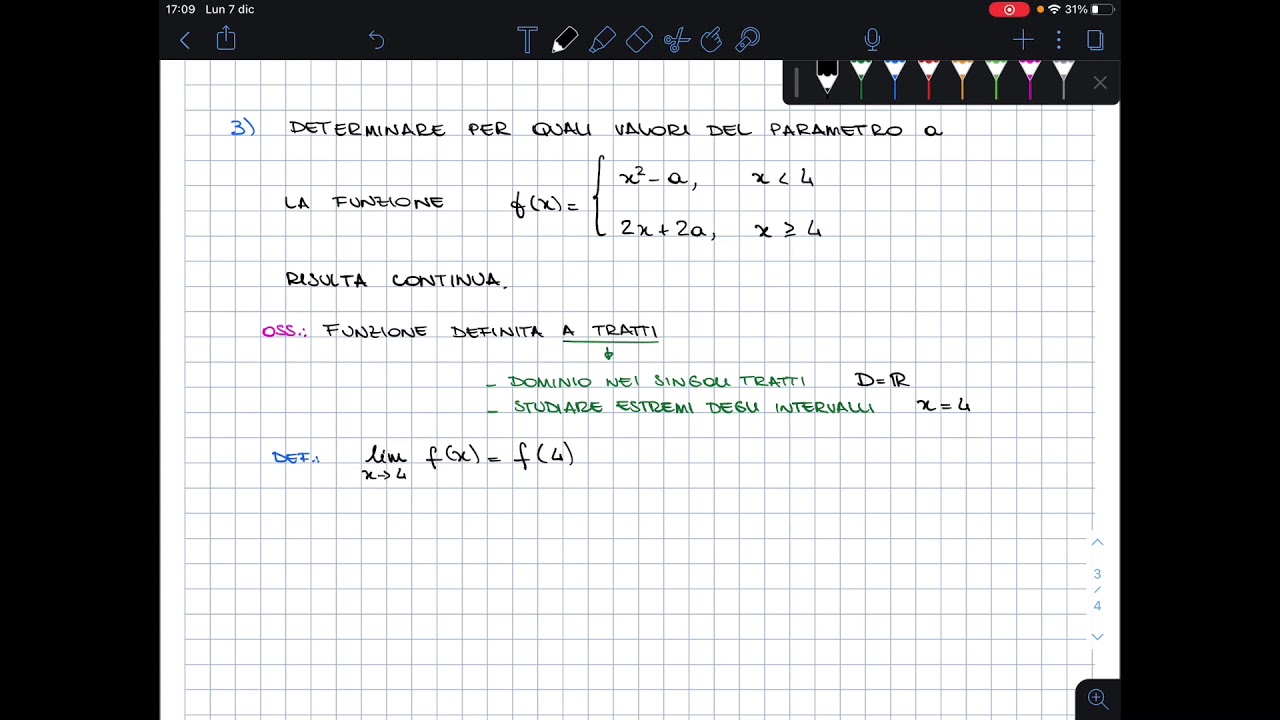 17:09 Lun 7 dic 31%
3) DETERMINARE PER QUALI VALORI DEL PARAMETRO a
x² - a, x < 4
LA FUNZIONE f(x) =
2x + 2a, x ≥ 4
RISULTA CONTINUA.
OSS.: FUNZIONE DEFINITA A TRATTI
- DOMINIO NEI SINGOLI TRATTI D = ℝ
- STUDIARE ESTREMI DEGLI INTERVALLI x = 4
DEF.: lim f(x) = f(4)
x→4
3
/
4